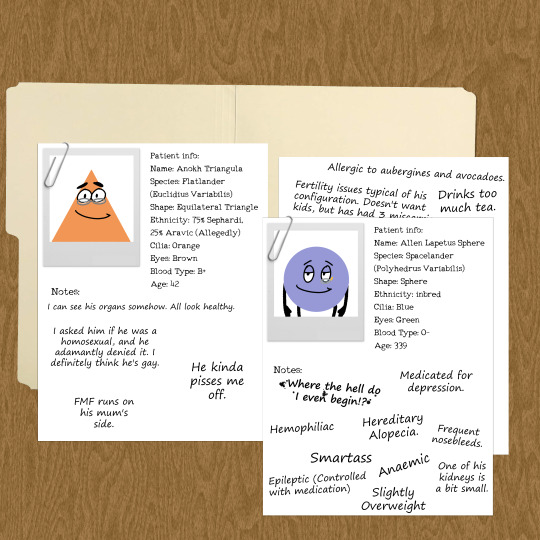 Patient info:
Name: Anokh Triangula
Species: Flatlander
(Euclidius Variabilis)
Shape: Equilateral Triangle
Ethnicity: 75% Sephardi,
25% Aravic (Allegedly)
Cilia: Orange
Eyes: Brown
Blood Type: B+
Age: 42
Notes:
I can see his organs somehow. All look healthy.
I asked him if he was a
homosexual, and he
adamantly denied it. I
definitely think he's gay.
He kinda
pisses me
off.
FMF runs on
his mum's
side.
Allergic to aubergines and avocadoes.
Fertility issues typical of his
configuration. Doesn't want
kids, but has had 3
Drinks too
much tea.
Patient info:
Name: Allen Lapetus Sphere
Species: Spacelander
(Polyhedrus Variabilis)
Shape: Sphere
Ethnicity: inbred
Cilia: Blue
Eyes: Green
Blood Type: O-
Age: 339
Notes:
Where the hell do
I even begin!?
Medicated for
depression.
Hemophiliac
Hereditary
Alopecia.
Frequent
nosebleeds.
Smartass
Anaemic
One of his
kidneys is
a bit small.
Epileptic (Controlled
with medication)
Slightly
Overweight